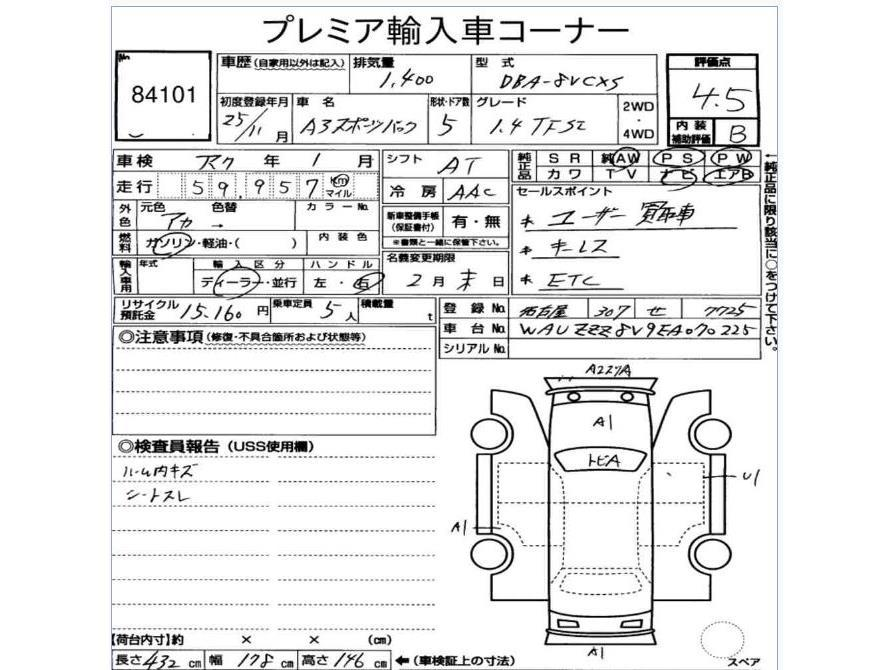 プレミア輸入車コーナー
No 84101
車歴 (自家用以外は記入) 排気量 1,400 型式 DBA-8VCXS
評価点 4.5
初度登録年月 25/11月 車名 A3スポーツバック 形状・ドア数 5 グレード 1.4 TFSI 2WD・4WD
内装補助評価 B
車検 アク 年 1 月 シフト AT
純正品 SR 純AW PS PW
カワ TV ナビ エアB
走行 59,957 Km マイル 冷房 AAC
←純正品に限り該当に○をつけて下さい。
外色 元色 アカ 色替 → カラーNo.
新車整備手帳(保証書付) 有・無
※書類と一緒に保管下さい。
セールスポイント
* ユーザー買取車
* キーレス
* ETC
燃料 ガソリン・軽油・( ) 内装色
名義変更期限 2月 末 日
輸入車用 年式 輸入区分 ディーラー・並行 ハンドル 左・右
リサイクル預託金 15.160 円 乗車定員 5 人 積載量 t
登録No. 名古屋 307 せ 7725
車台No. WAUZZZ8V9EA070225
シリアルNo.
◎注意事項 (修復・不具合箇所および状態等)
A2ヱクA
A1
トビA
U1
A1
A1
◎検査員報告 (USS使用欄)
ルーム内キズ
シートスレ
【荷台内寸】約 × × (cm)
長さ 432 cm 幅 178 cm 高さ 146 cm ←(車検証上の寸法)
スペア